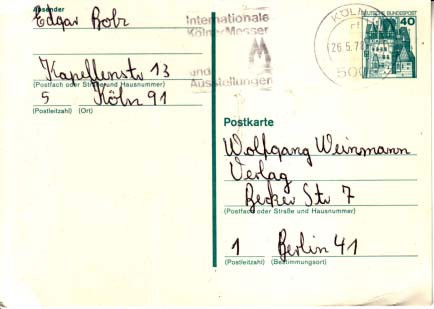 Absender
Edgar Bobr
Kapellenstr 13
(Postfach oder Straße und Hausnummer)
5 Köln 91
(Postleitzahl) (Ort)
Internationale
Kölner Messen
und
Ausstellungen
KÖLN
26.5.78
500
DEUTSCHE BUNDESPOST
40
Postkarte
Wolfgang Weinmann
Verlag
Becker Str 7
(Postfach oder Straße und Hausnummer)
1 Berlin 41
(Postleitzahl) (Bestimmungsort)